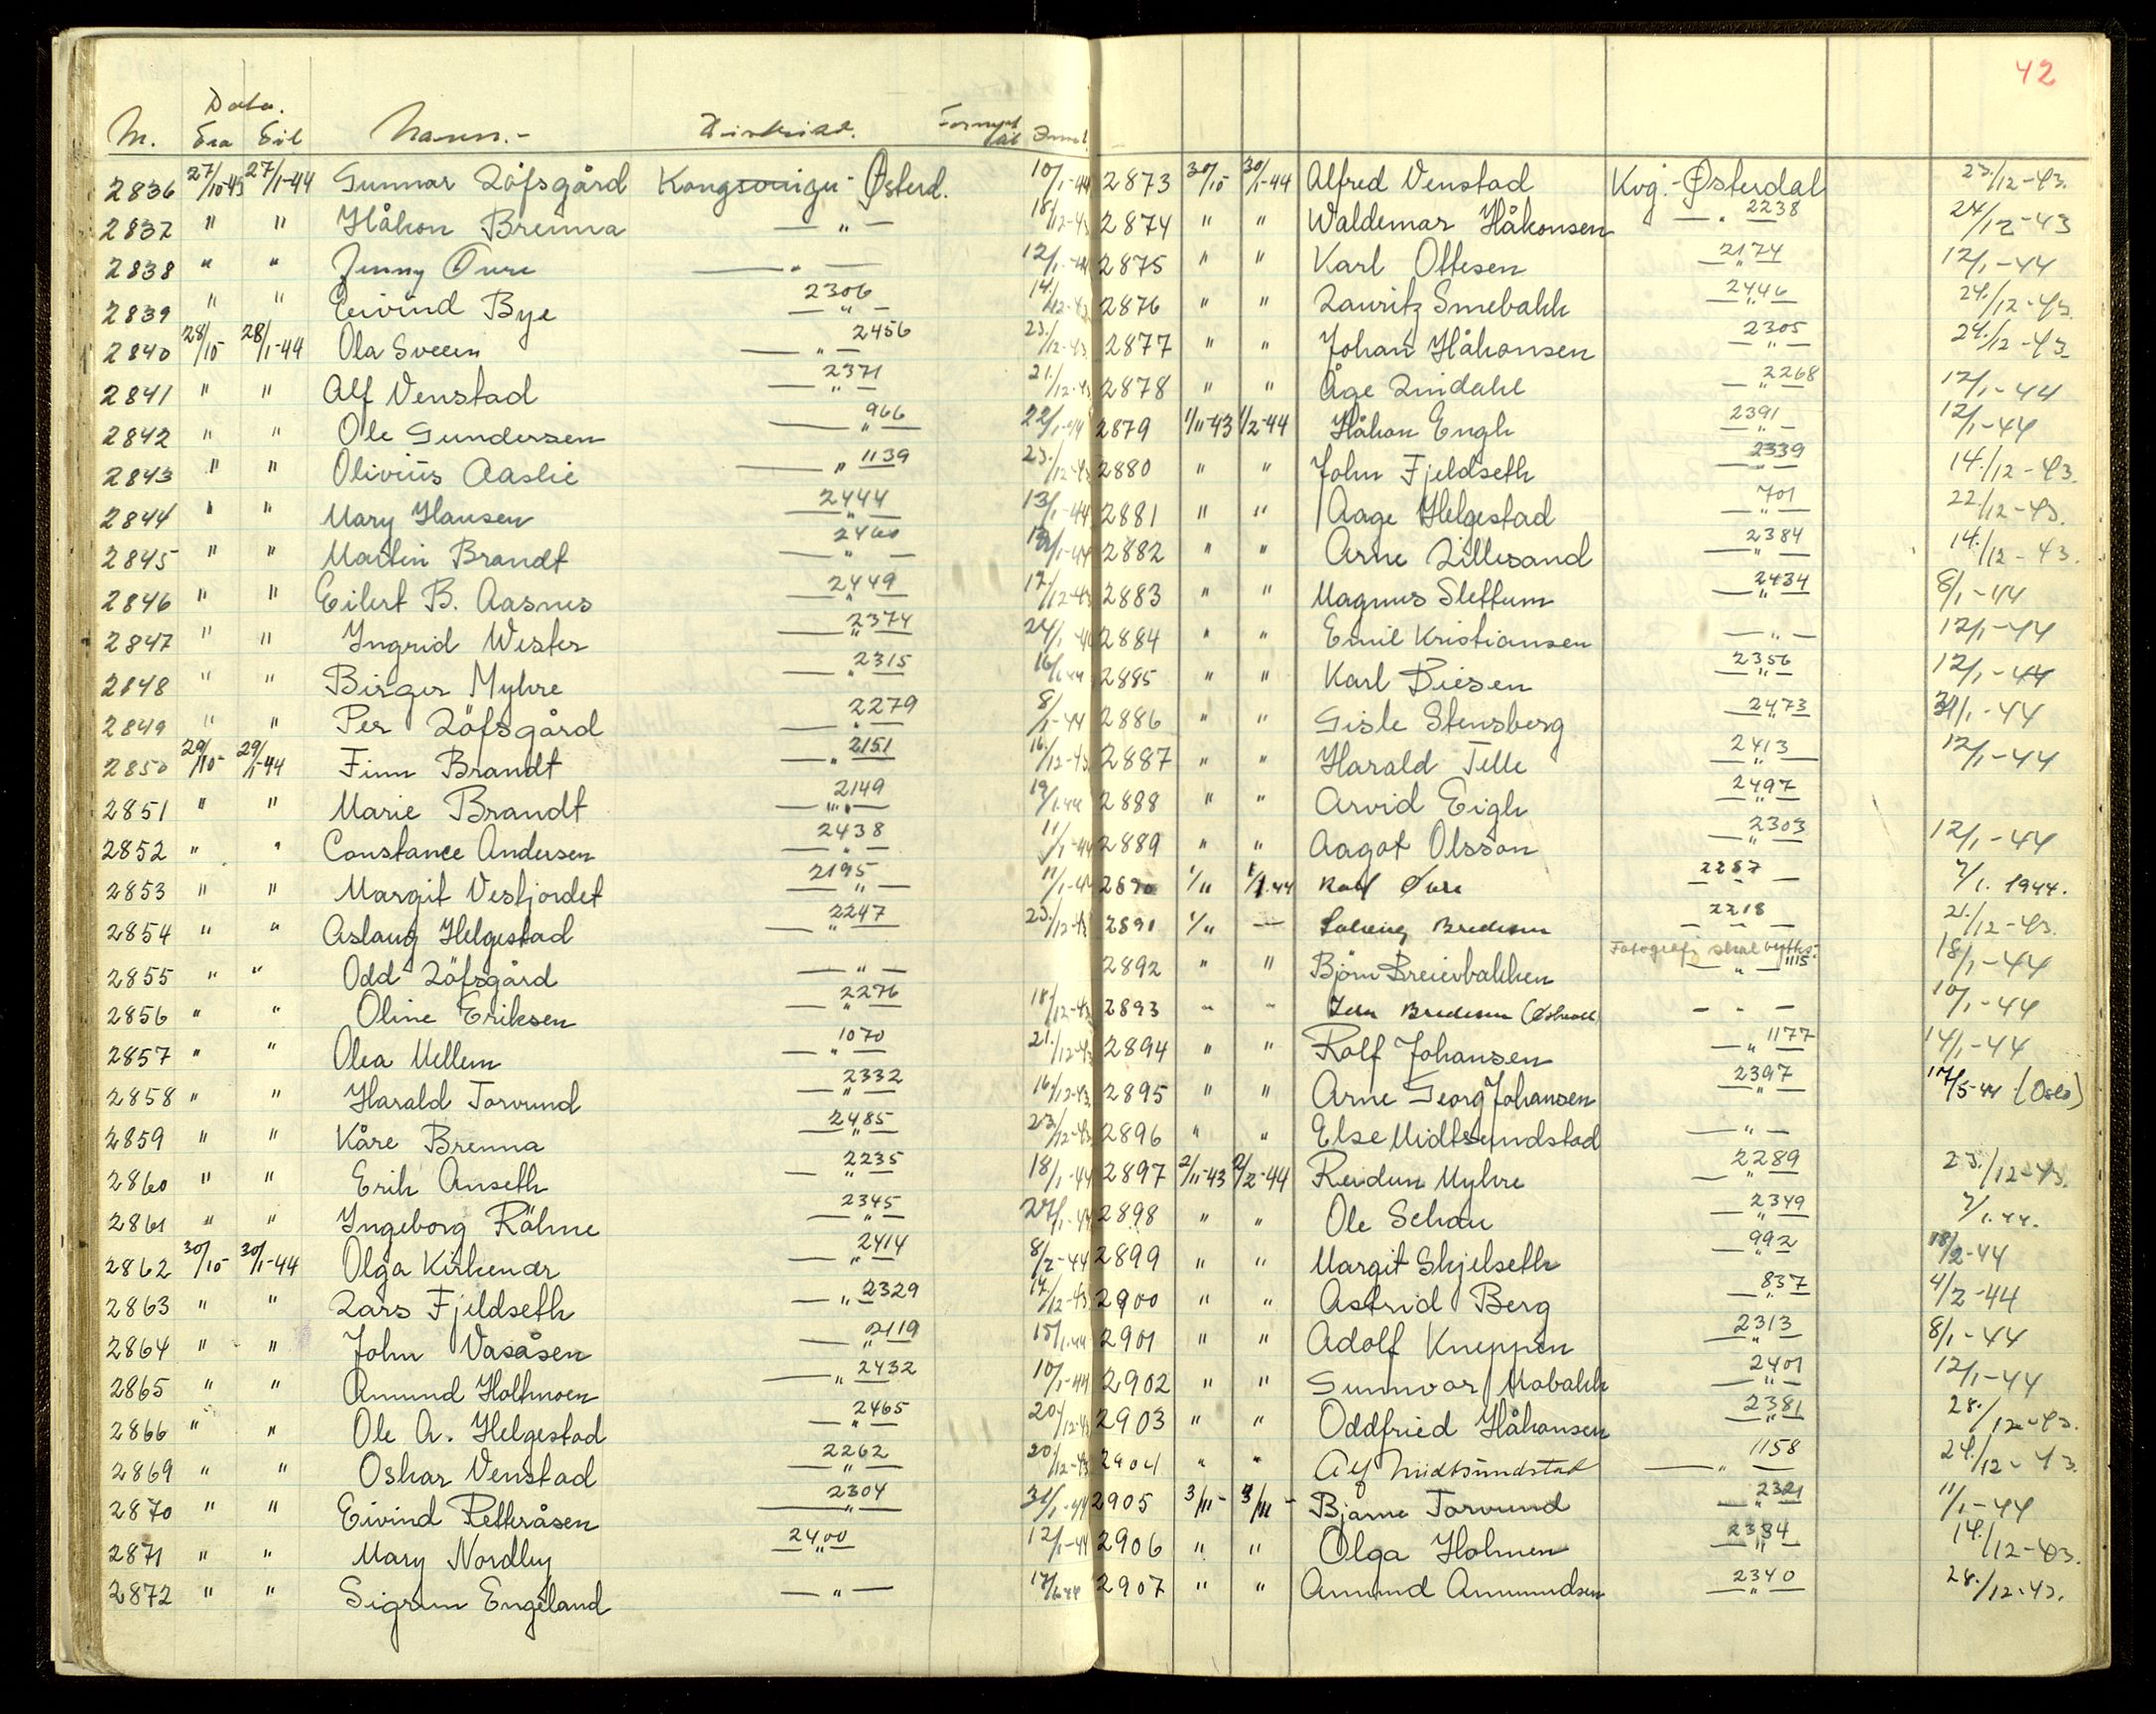 42
Data.
Nr. Fra Til Navn.- Distrikt. Fornyet til Innl.
2836 27/10-43 27/1-44 Gunnar Löfsgård Kongsvinger-Østerd. 10/1-44
2837 " " Håkon Brenna — " — 18/12-43
2838 " " Jenny Øure — " — 12/1-44
2839 " " Eivind Bye 2306 — " — 14/12-43
2840 28/10 28/1-44 Ola Sveen — " — 2456 23./12-43
2841 " " Alf Venstad 2371 — " — 21./12-43
2842 " " Ole Gundersen 966 — " — 22/1-44
2843 " " Olivius Aaslie — " 1139 23./12-43
2844 " " Mary Hansen 2444 — " — 13/1-44
2845 " " Martin Brandt 2460 — " — 1-44
2846 " " Eilert B. Aasnes 2449 — " — 17/12-43
2847 " " Ingrid Wester 2374 — " — 24/1-
2848 " " Birger Myhre 2315 — " — 16/1-44
2849 " " Per Löfsgård 2279 — " — 8/1-44
2850 29/10- 29/1-44 Finn Brandt 2151 — " — 16./12-43
2851 " " Marie Brandt 2149 — " — 19/1.44
2852 " " Constance Andersen 2438 — " — 11/1-44
2853 " " Margit Vestjordet 2195 — " — 11/1-44
2854 " " Aslaug Helgestad 2247 — " — 23./12-43
2855 " " Odd Löfsgård — " —
2856 " " Oline Eriksen 2276 — " — 18/12-43
2857 " " Olea Mellem 1070 — " — 21./12-43
2858 " " Harald Torvund 2332 — " — 16/12-43
2859 " " Kåre Brenna 2485 — " — 23/12-43
2860 " " Erik Anseth 2235 — " — 18/1-44
2861 " " Ingeborg Råhne 2345 — " — 27/1-44
2862 30/10- 30/1-44 Olga Kirkenær 2414 — " — 8/2-44
2863 " " Lars Fjeldseth — " 2329 14/12-43
2864 " " John Vasåsen 2119 — " — 15/1.44
2865 " " Amund Holtmoen — " 2432 10/1-44
2866 " " Ole A. Helgestad 2465 — " — 20./12-43
2869 " " Oskar Venstad 2262 — " — 20./12-43
2870 " " Eivind Petteråsen 2304 — " — 31/1-44
2871 " " Mary Nordby 2400 — " — 12/1-44
2872 " " Sigrun Engeland — " — 17/1-44
2873 30/10- 30/1-44 Alfred Venstad Kvg.-Østerdal 23./12-43.
2874 " " Waldemar Håkonsen — " 2238 24/12-43
2875 " " Karl Ottesen 2174 — " — 12/1-44
2876 " " Lauritz Smebakk 2446 — " — 24./12-43.
2877 " " Johan Håkonsen 2305 — " — 24./12-43.
2878 " " Åge Lindahl 2268 — " — 12/1-44
2879 1/11-43 1/2-44 Håkon Engh 2391 — " — 12/1-44
2880 " " John Fjeldseth 2339 — " — 14./12-43.
2881 " " Aage Helgestad 701 — " — 22/12-43.
2882 " " Arne Lillesand 2384 — " — 14./12-43.
2883 " " Magnus Slettum 2434 — " — 8/1-44
2884 " " Emil Kristiansen — " — 12/1-44
2885 " " Karl Biesen 2356 — " — 12/1-44
2886 " " Gisle Stensberg 2473 — " — 31/1-44
2887 " " Harald Telle 2413 — " — 12/1-44
2888 " " Arvid Eigh 2497 — " —
2889 " " Aagot Olsson 2303 — " — 12/1-44
2890 1/11 1/1.44 Karl Øure 2287 — " — 7/1. 1944.
2891 1/11 — Solveig Bredesen 2218 — " — 21./12-43.
2892 " " Bjørn Breierbakken Fotografi skal byttes. — " — 1115 18/1-44
2893 " " Bredesen — " — 10/1-44
2894 " " Rolf Johansen — " 1177 14/1-44
2895 " " Arne Georg Johansen 2397 — " — 14/5-44 (Oslo)
2896 " " Else Midtsundstad — " —
2897 2/11-43 2/2-44 Reidun Myhre 2289 — " — 23./12-43.
2898 " " Ole Schou 2349 — " — 7/1.44.
2899 " " Margit Skjelseth 992 — " — 18/2-44
2900 " " Astrid Berg 837 — " — 4/2-44
2901 " " Adolf Kneppen 2313 — " — 8/1-44
2902 " " Gunnvor Mobakk 2401 — " — 12/1-44
2903 " " Oddfried Håkansen 2381 — " — 28./12-43.
2904 " " Alf Midtsundstad 1158 — " — 24./12-43.
2905 3/11- 3/11- Bjarne Torvund 2321 — " — 11/1-44
2906 " " Olga Holmen 2334 — " — 14./12-43.
2907 " " Amund Amundsen 2340 — " — 28./12-43.